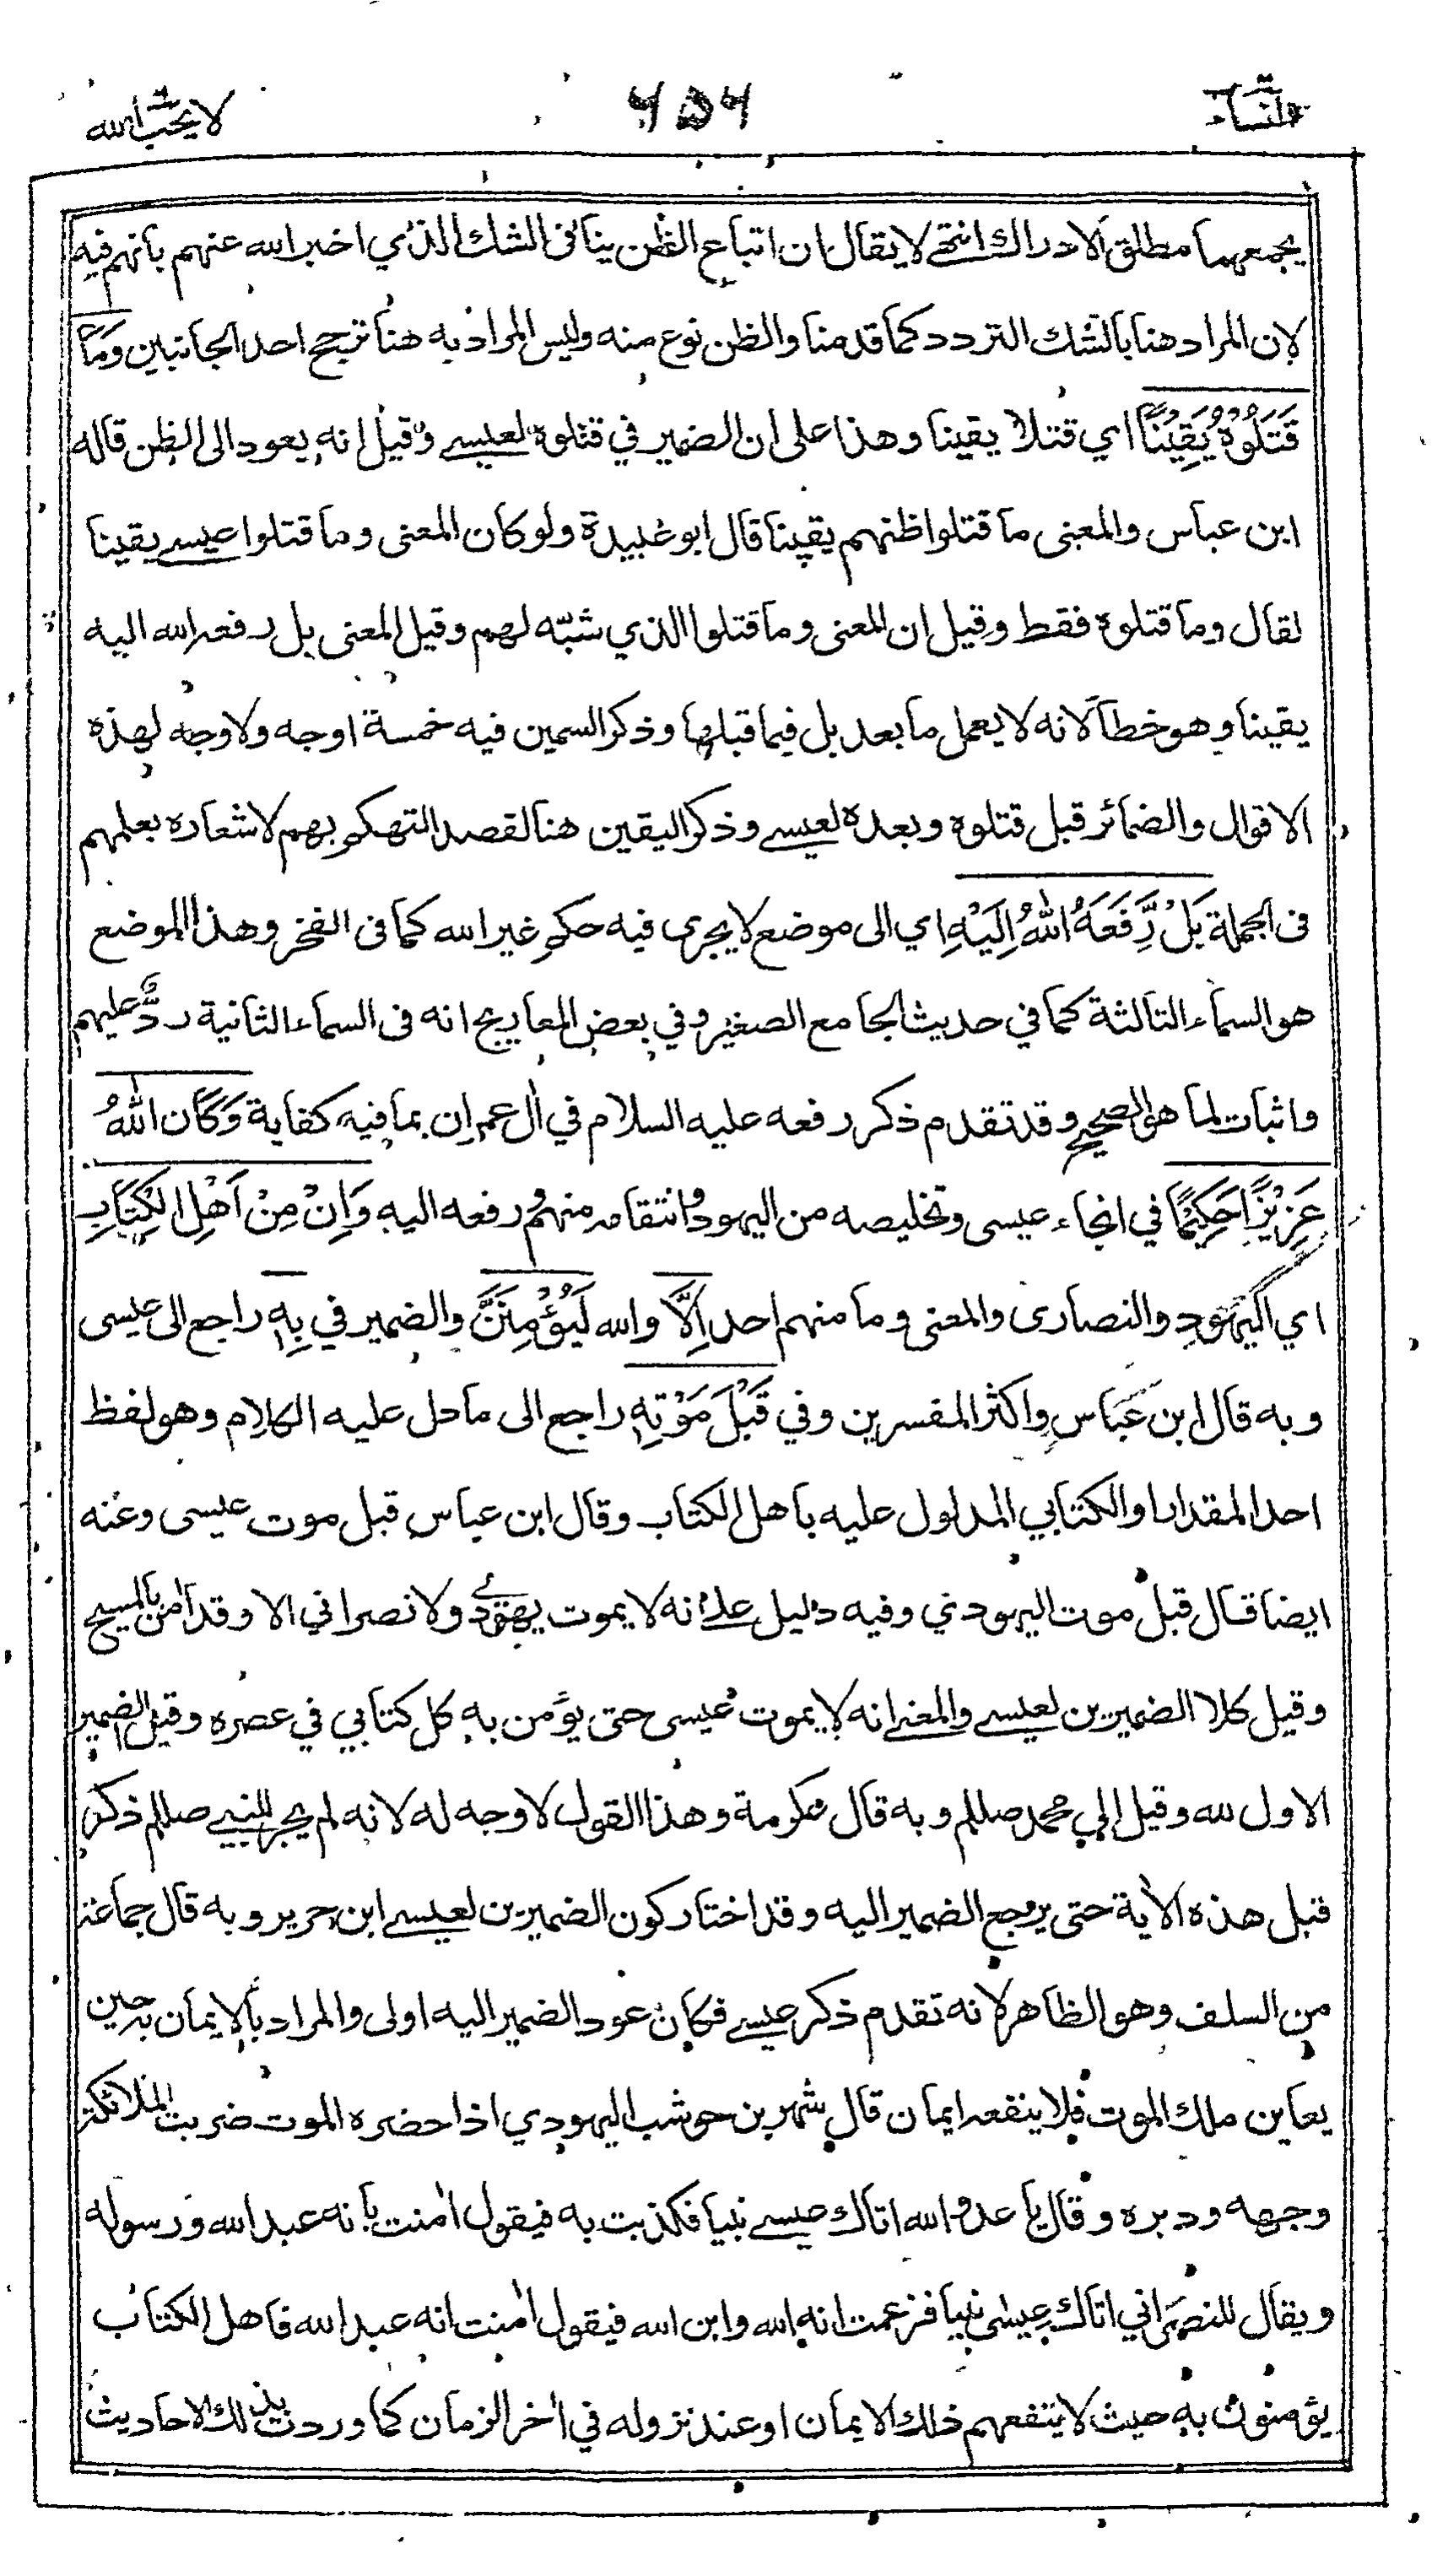 والنساء
٦٥٦
لا يحب الله
يجمعهما مطلق الادراك انتهى لا يقال ان اتباع الظن ينافى الشك الذي اخبر الله عنهم بانهم فيه
لان المراد هنا بالشك التردد كما قدمنا والظن نوع منه وليس المراد به هنا ترجح احد الجانبين وَمَا
قَتَلُوْهُ يَقِيْنًا اي قتلا يقينا وهذا على ان الضمير في قتلوه لعيسى وقيل انه يعود الى الظن قاله
ابن عباس والمعنى ما قتلوا ظنهم يقينا قال ابو عبيدة ولو كان المعنى وما قتلوا عيسى يقينا
لقال وما قتلوه فقط وقيل ان المعنى وما قتلوا الذي شبّه لهم وقيل المعنى بل رفعه الله اليه
يقينا وهو خطأ لانه لا يعمل ما بعد بل فيما قبلها وذكر السمين فيه خمسة اوجه ولا وجه لهذه
الاقوال والضمائر قبل قتلوه وبعده لعيسى وذكر اليقين هنا لقصد التهكم بهم لاشعاره بعلمهم
فى الجملة بَلْ رَّفَعَهُ اللهُ اِلَيْهِ اي الى موضع لا يجرى فيه حكم غير الله كما فى الفخر وهذا الموضع
هو السماء الثالثة كما في حديث الجامع الصغير وفي بعض المعاريج انه فى السماء الثانية ردٌّ عليهم
واثبات لما هو الصحيح وقد تقدم ذكر رفعه عليه السلام في اٰل عمران بما فيه كفاية وَكَانَ اللهُ
عَزِيْزًا حَكِيْمًا في انجاء عيسى وتخليصه من اليهود وانتقامه منهم ورفعه اليه وَاِنْ مِنْ اَهْلِ الْكِتَابِ
اي اليهود والنصارى والمعنى وما منهم احد اِلَّا والله لَيُؤْمِنَنَّ والضمير في بِهٖ راجع الى عيسى
وبه قال ابن عباس واكثر المفسرين وفي قَبْلَ مَوْتِهٖ راجع الى ما دل عليه الكلام وهو لفظ
احد المقدار او الكتابي المدلول عليه باهل الكتاب وقال ابن عباس قبل موت عيسى وعنه
ايضا قال قبل موت اليهودي وفيه دليل على انه لا يموت يهودي ولا نصراني الا وقد اٰمن بالمسيح
وقيل كلا الضميرين لعيسى والمعنى انه لا يموت عيسى حتى يؤمن به كل كتابي في عصره وقيل الضمير
الاول لله وقيل إلى محمد صللم وبه قال عكرمة وهذا القول لا وجه له لانه لم يجر للنبي صللم ذكر
قبل هذه الاٰية حتى يرجع الضمير اليه وقد اختار كون الضميرين لعيسى ابن جرير وبه قال جماعة
من السلف وهو الظاهر لانه تقدم ذكر عيسى فكان عود الضمير اليه اولى والمراد بالايمان به حين
يعاين ملك الموت فلا ينفعه ايمان قال شهر بن حوشب اليهودي اذا حضره الموت ضربت الملائكة
وجهه ودبره وقال يا عدو الله اتاك عيسى نبيا فكذبت به فيقول اٰمنت بانه عبد الله ورسوله
ويقال للنصراني اتاك عيسى نبيا فزعمت انه الله وابن الله فيقول اٰمنت انه عبد الله فاهل الكتاب
يؤمنون به حيث لا ينفعهم ذلك الايمان او عند نزوله في اٰخر الزمان كما وردت بذلك الاحاديث